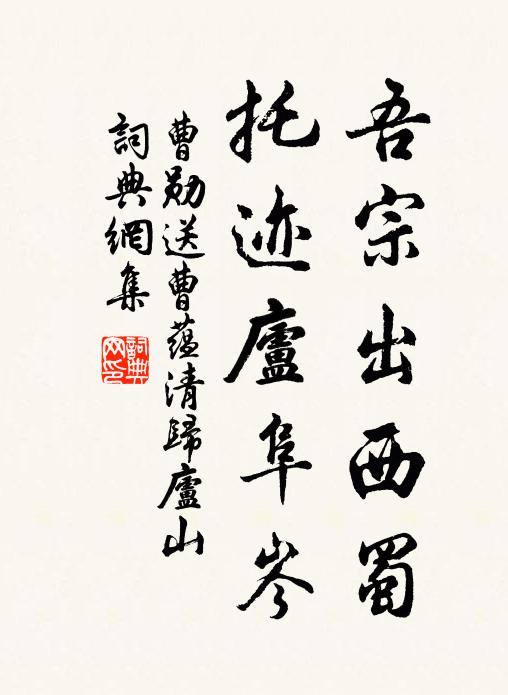 吾宗出西蜀
托迹廬阜岑
曹勛送曹蕴清歸廬山
詞典網集
詞典網印